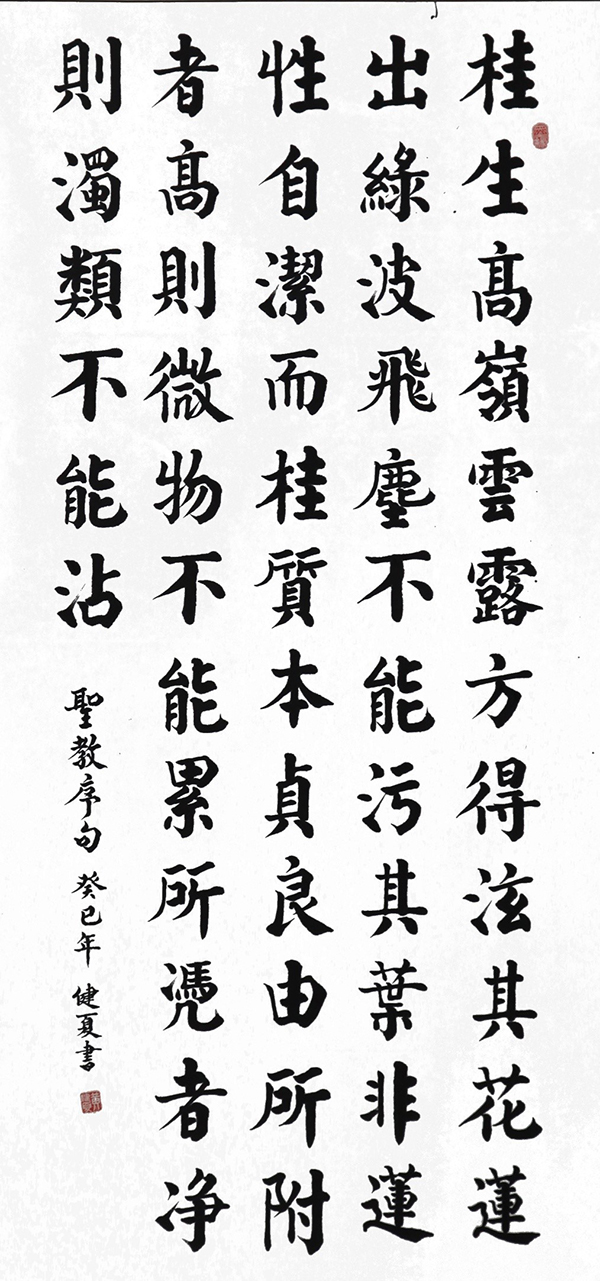 桂生高嶺雲露方得泫其花蓮
出綠波飛塵不能污其葉非蓮
性自潔而桂質本貞良由所附
者高則微物不能累所憑者净
則濁類不能沾
聖教序句 癸巳年 健夏書